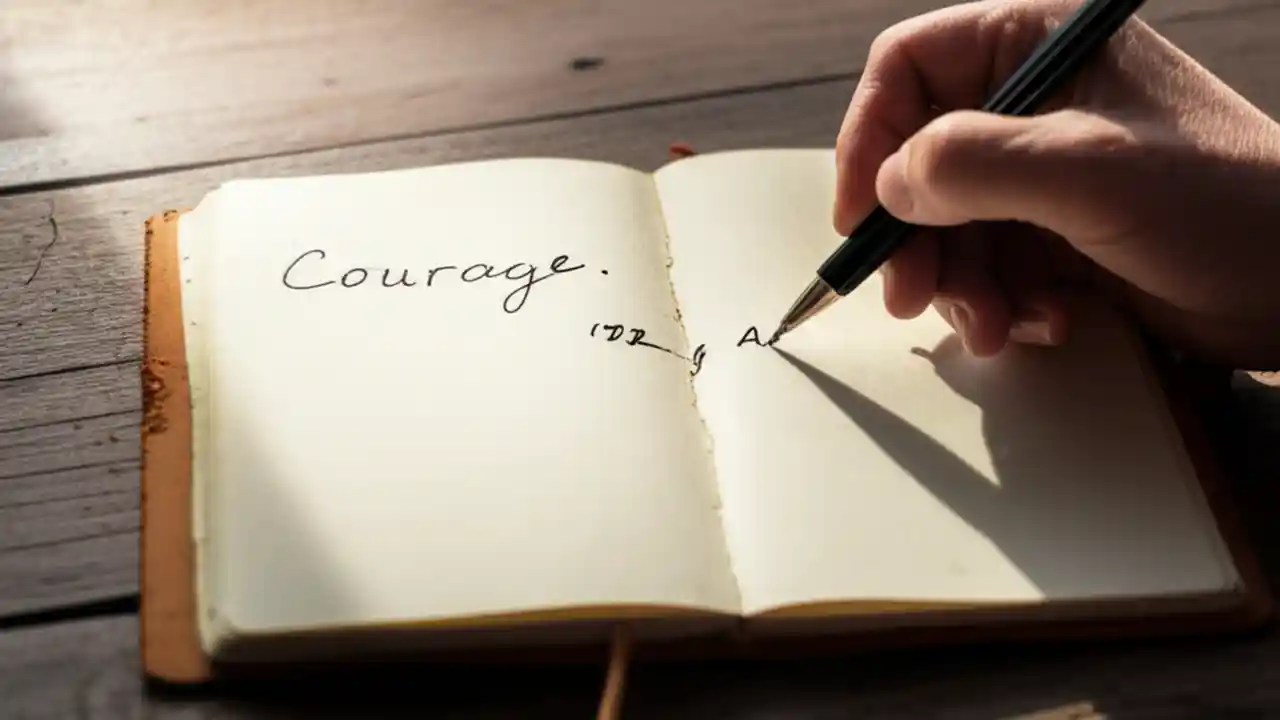 Courage.
A